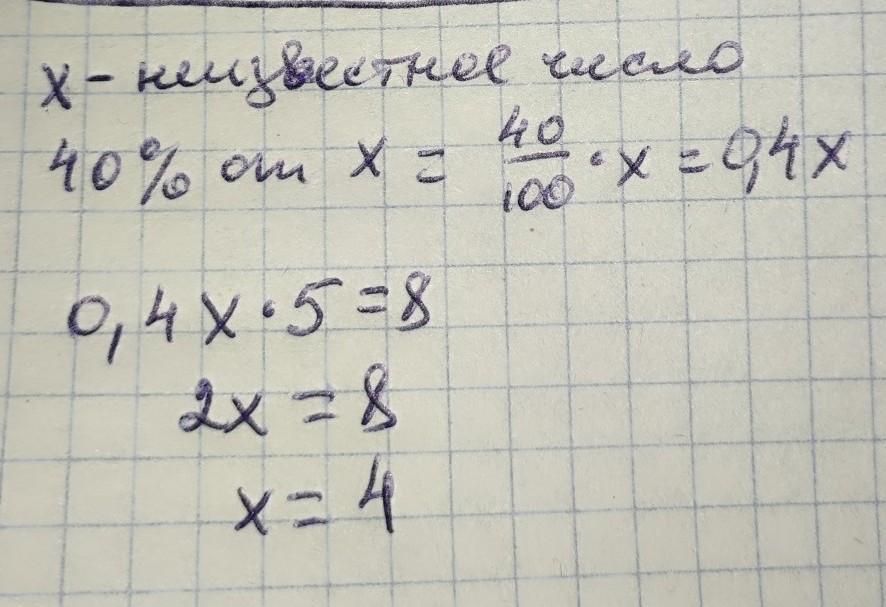 x - неизвестное число
40% от x = 40/100 · x = 0,4x
0,4x · 5 = 8
2x = 8
x = 4